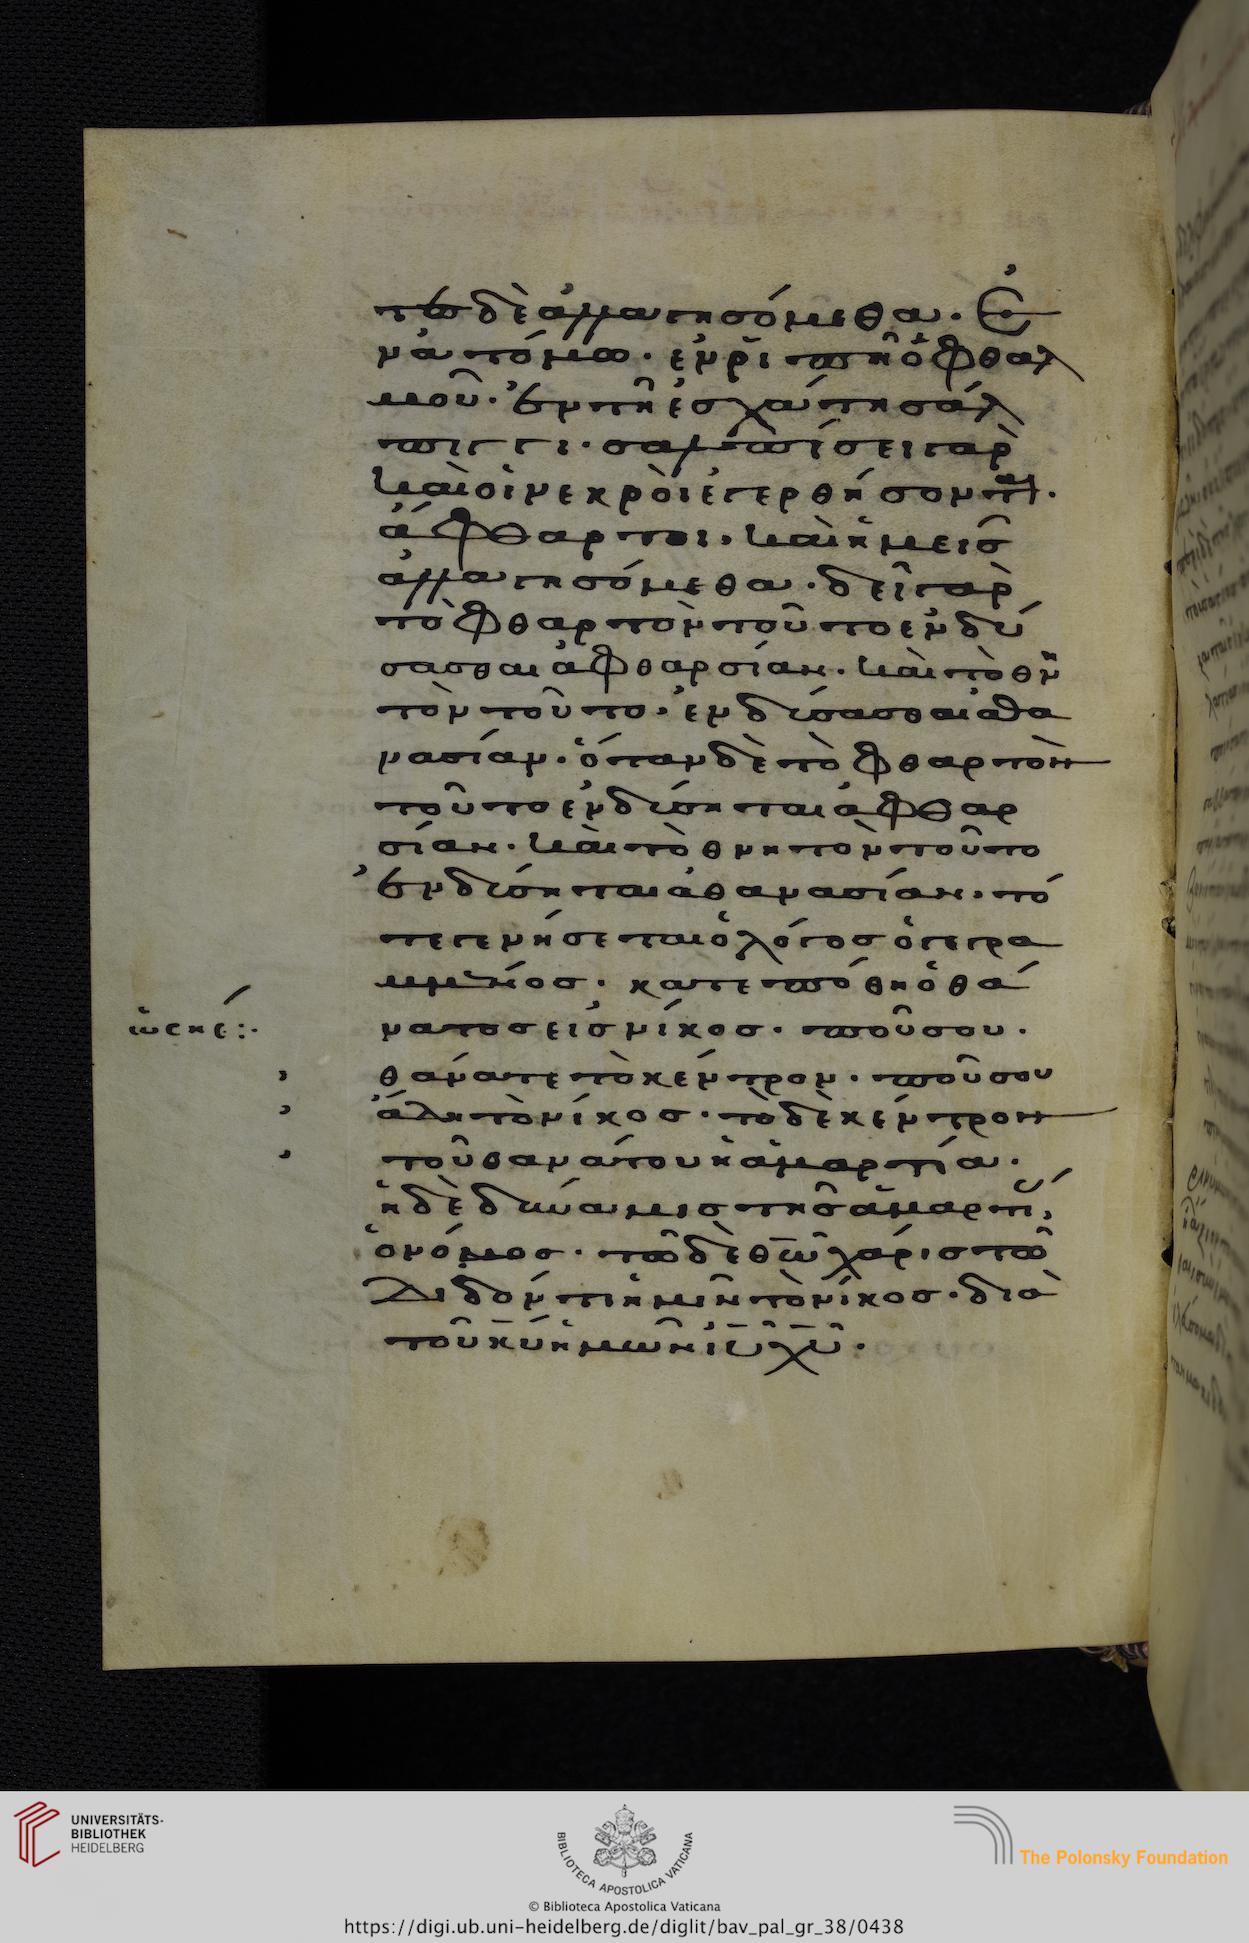 τω δὲ ἀλλαγησόμεθα· Ἐ
ν ἀτόμω· ἐν ῥιπῆ ὀφθαλ
μοῦ· ἐν τῆ ἐσχάτη σάλ
πιγγι· σαλπίσει γὰρ
καὶ οἱ νεκροὶ ἐγερθήσονται·
ἄφθαρτοι· καὶ ἡμεῖς
ἀλλαγησόμεθα· δεῖ γὰρ
τὸ φθαρτὸν τοῦτο ἐνδύ
σασθαι ἀφθαρσίαν· καὶ τὸ θνη
τὸν τοῦτο· ἐνδύσασθαι ἀθα
νασίαν· ὅταν δὲ τὸ φθαρτὸν
τοῦτο ἐνδύσηται ἀφθαρ
σίαν· καὶ τὸ θνητὸν τοῦτο
ἐνδύσηται ἀθανασίαν· τό
τε γενήσεται ὁ λόγος ὁ γεγρα
μμένος· κατεπόθη ὁ θά
νατος εἰς νίκος· ποῦ σου·
ὡσηέ:·
θάνατε τὸ κέντρον· ποῦ σου
ἅδη τὸ νίκος· τὸ δὲ κέντρον
τοῦ θανάτου ἡ ἁμαρτία·
ἡ δὲ δύναμις τῆς ἁμαρτί
ὁ νόμος· τῶ δὲ θῶ χάρις τῶ
διδόντι ἡμῖν τὸ νίκος· διὰ
τοῦ κυ ἡμῶν ιυ χυ·
UNIVERSITÄTS-
BIBLIOTHEK
HEIDELBERG
BIBLIOTECA APOSTOLICA VATICANA
The Polonsky Foundation
© Biblioteca Apostolica Vaticana
https://digi.ub.uni-heidelberg.de/diglit/bav_pal_gr_38/0438